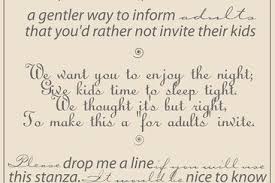 a gentler way to inform adults
that you'd rather not invite their kids
We want you to enjoy the night;
Give kids time to sleep tight.
We thought its but right,
To make this a "for adults" invite.
Please drop me a line if you will use
this stanza. It would be nice to know